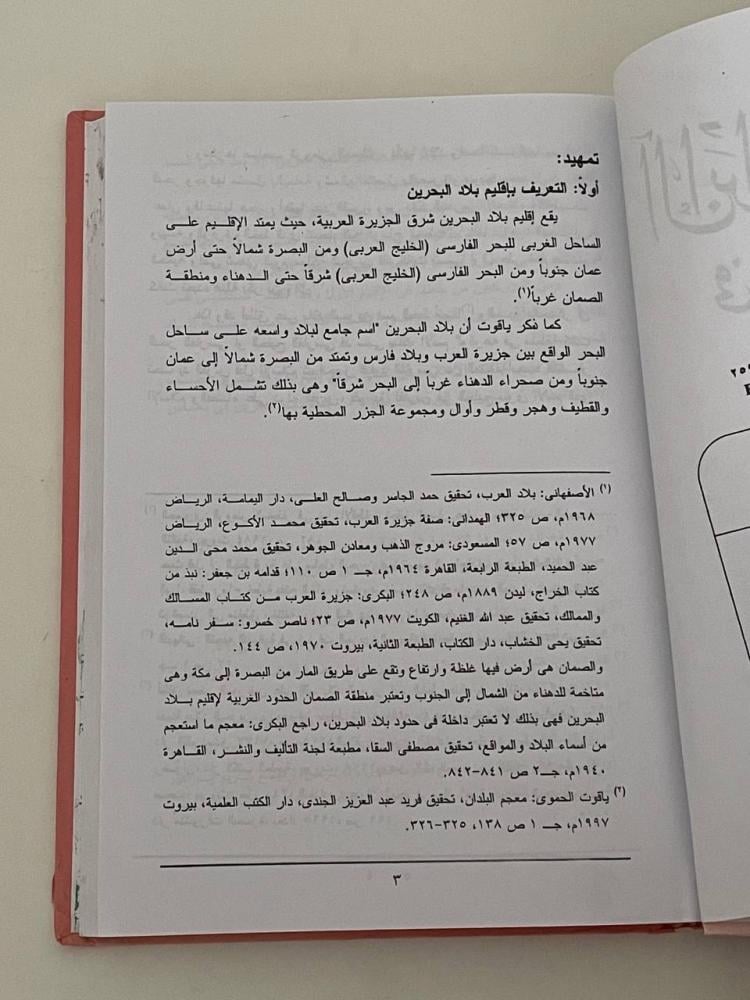 تمهيد:
أولاً: التعريف بإقليم بلاد البحرين
يقع إقليم بلاد البحرين شرق الجزيرة العربية، حيث يمتد الإقليم على
الساحل الغربى للبحر الفارسى (الخليج العربى) ومن البصرة شمالاً حتى أرض
عمان جنوباً ومن البحر الفارسى (الخليج العربى) شرقاً حتى الدهناء ومنطقة
الصمان غرباً(١).
كما ذكر ياقوت أن بلاد البحرين "اسم جامع لبلاد واسعه على ساحل
البحر الواقع بين جزيرة العرب وبلاد فارس وتمتد من البصرة شمالاً إلى عمان
جنوباً ومن صحراء الدهناء غرباً إلى البحر شرقاً" وهى بذلك تشمل الأحساء
والقطيف وهجر وقطر وأوال ومجموعة الجزر المحطية بها(٢).
(١) الأصفهانى: بلاد العرب، تحقيق حمد الجاسر وصالح العلى، دار اليمامة، الرياض
١٩٦٨م، ص ٣٢٥؛ الهمدانى: صفة جزيرة العرب، تحقيق محمد الأكوع، الرياض
١٩٧٧م، ص ٥٧؛ المسعودى: مروج الذهب ومعادن الجوهر، تحقيق محمد محى الدين
عبد الحميد، الطبعة الرابعة، القاهرة ١٩٦٤م، جـ ١ ص ١١٠؛ قدامه بن جعفر: نبذ من
كتاب الخراج، ليدن ١٨٨٩م، ص ٢٤٨؛ البكرى: جزيرة العرب من كتاب المسالك
والممالك، تحقيق عبد الله الغنيم، الكويت ١٩٧٧م، ص ٢٣؛ ناصر خسرو: سفر نامه،
تحقيق يحى الخشاب، دار الكتاب، الطبعة الثانية، بيروت ١٩٧٠، ص ١٤٤.
والصمان هى أرض فيها غلظة وارتفاع وتقع على طريق المار من البصرة إلى مكة وهى
متاخمة للدهناء من الشمال إلى الجنوب وتعتبر منطقة الصمان الحدود الغربية لإقليم بلاد
البحرين فهى بذلك لا تعتبر داخلة فى حدود بلاد البحرين، راجع البكرى: معجم ما استعجم
من أسماء البلاد والمواقع، تحقيق مصطفى السقا، مطبعة لجنة التأليف والنشر، القاهرة
١٩٤٠م، جـ٢ ص ٨٤١-٨٤٢.
(٢) ياقوت الحموى: معجم البلدان، تحقيق فريد عبد العزيز الجندى، دار الكتب العلمية، بيروت
١٩٩٧م، جـ ١ ص ١٣٨، ٣٢٥-٣٢٦.
٣